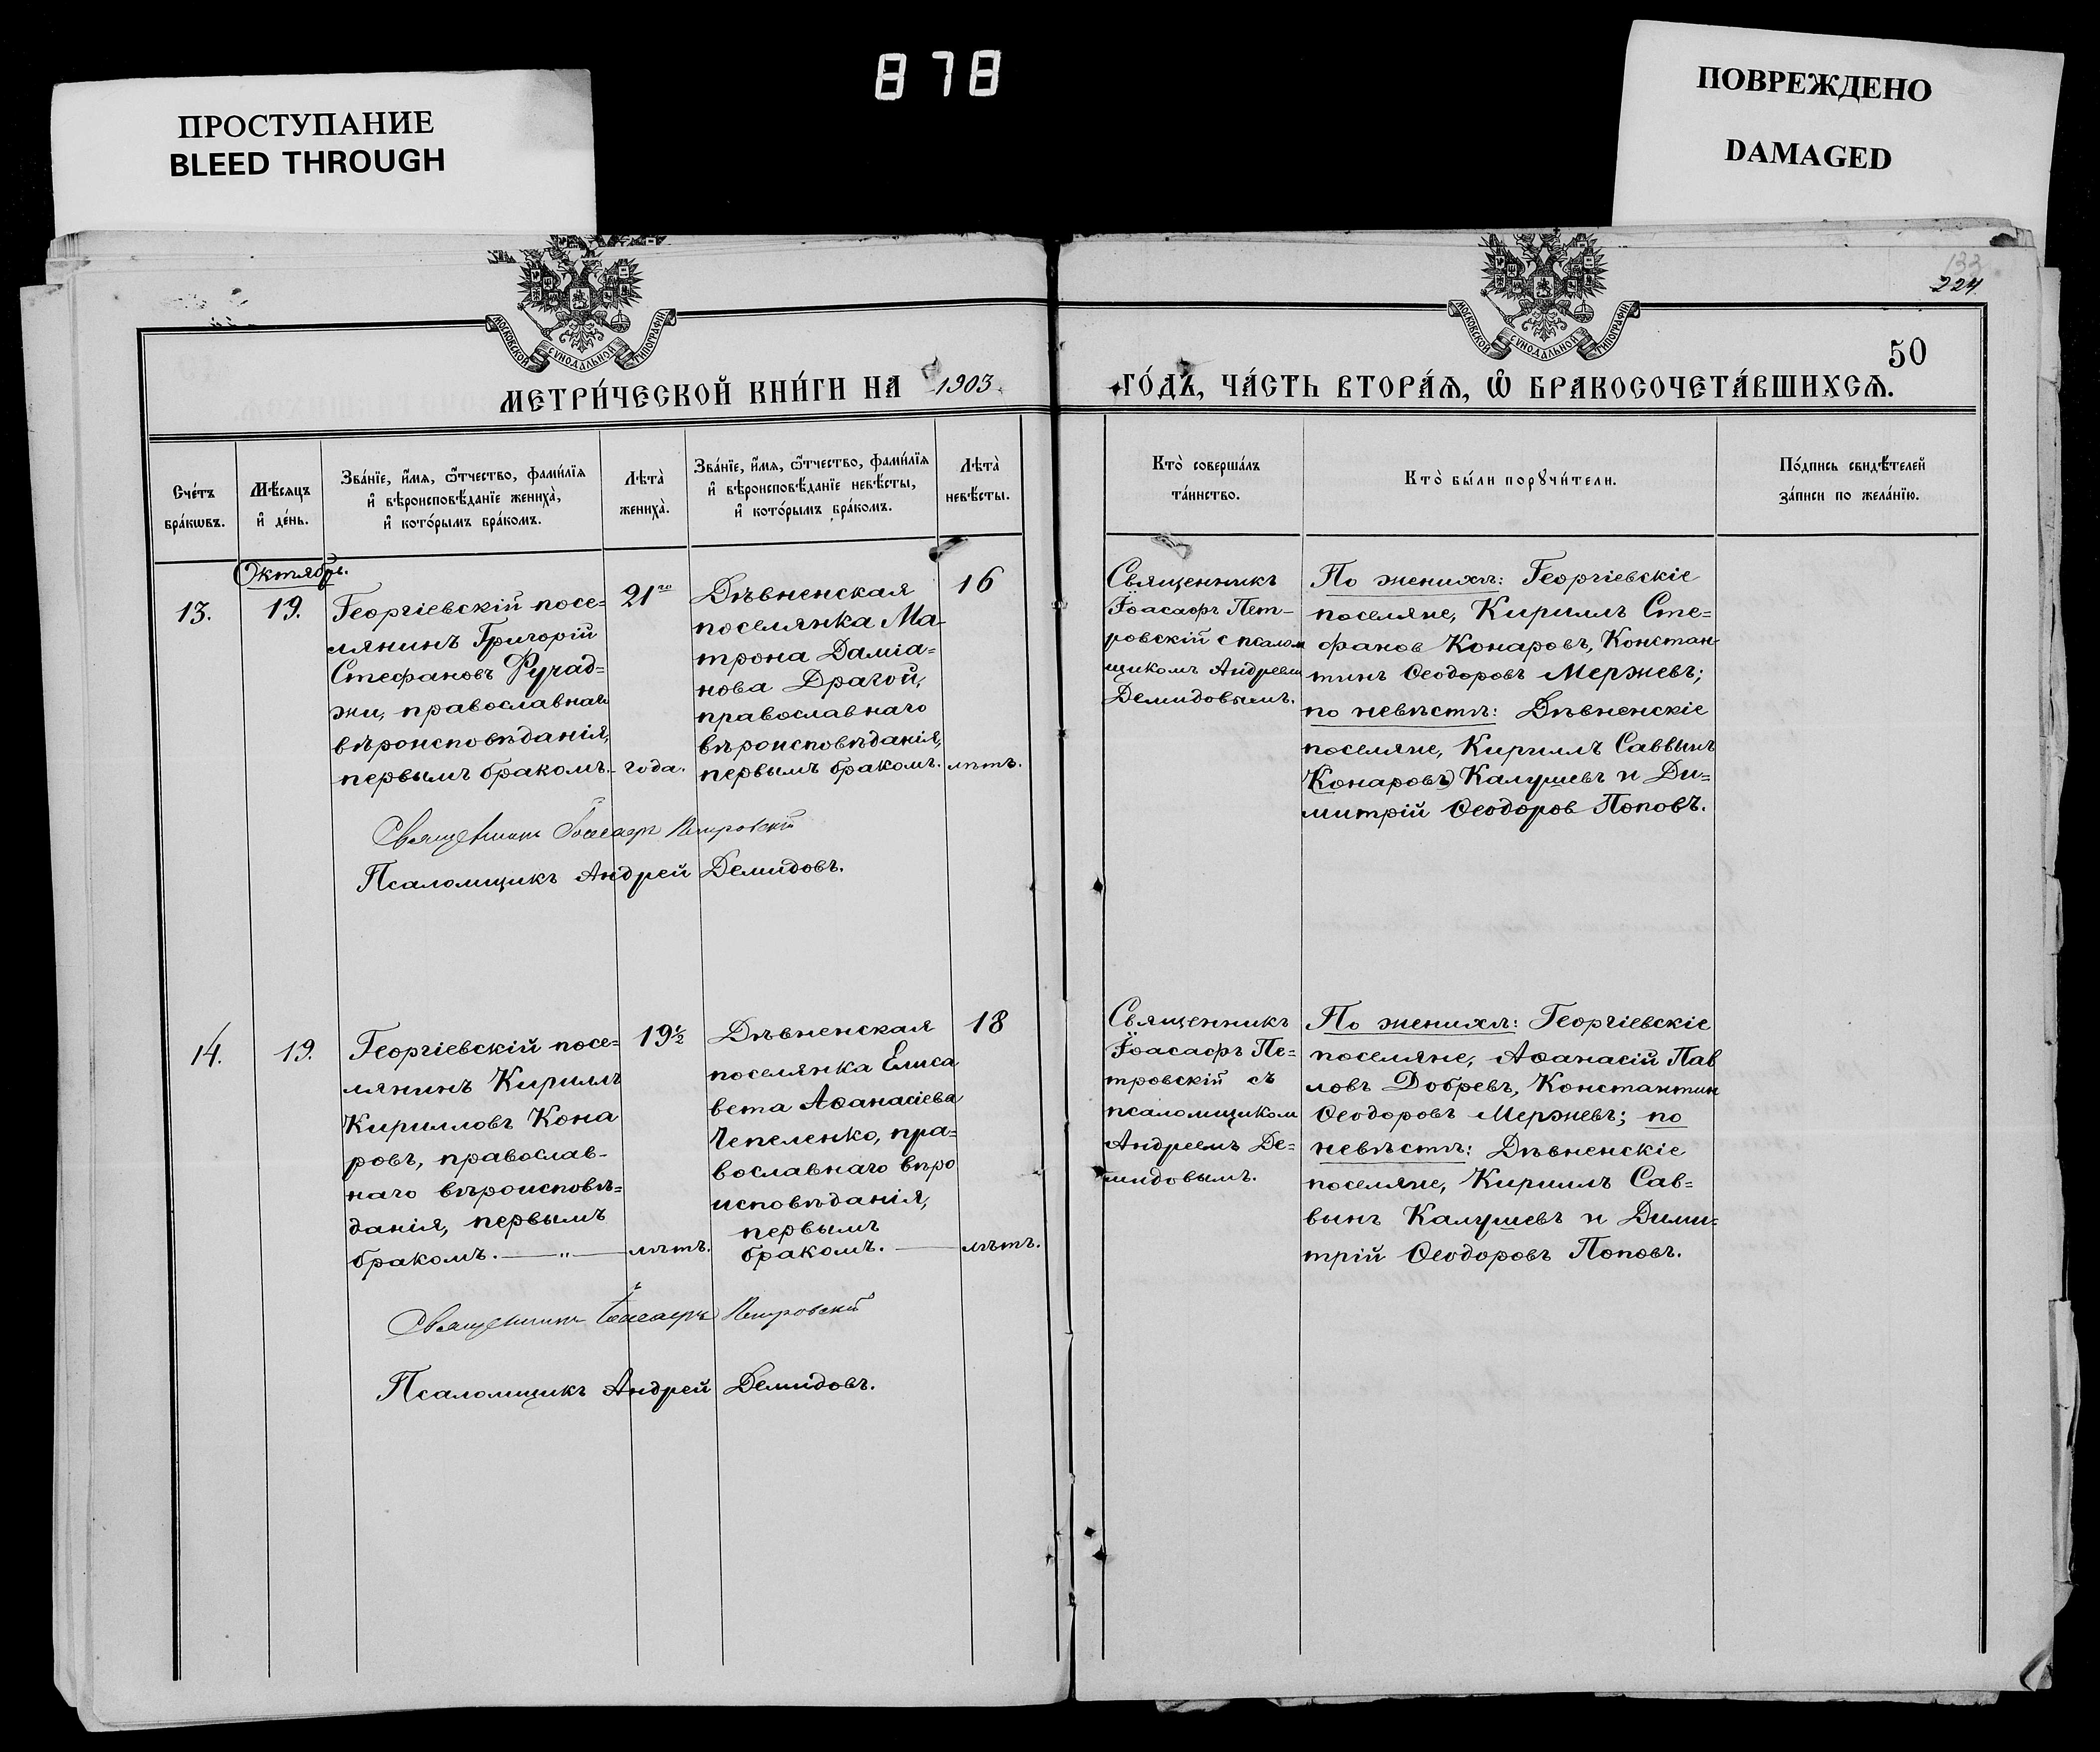 878
ПРОСТУПАНИЕ
BLEED THROUGH
ПОВРЕЖДЕНО
DAMAGED
МОСКОВСКОЙ СѴНОДАЛЬНОЙ ТИПОГРАФІИ
МОСКОВСКОЙ СѴНОДАЛЬНОЙ ТИПОГРАФІИ
133
224.
50
МЕТРИ́ЧЕСКОЙ КНИ́ГИ НА 1903
ГО́ДЪ, ЧА́СТЬ ВТОРА́Ѧ, Ѽ БРАКОСОЧЕТА́ВШИХСѦ.
Сче́тъ
бра́кѡвъ.
Мѣ́сяцъ
и҆ де́нь.
Зва́нїе, и҆́мя, ѻ҆́тчество, фами́лїя
и҆ вѣроисповѣ́данїе жениха̀,
и҆ кото́рымъ бра́комъ.
Лѣта̀
жениха̀.
Зва́нїе, и҆́мя, ѻ҆́тчество, фами́лїя
и҆ вѣроисповѣ́данїе невѣ́сты,
и҆ кото́рымъ бра́комъ.
Лѣта̀
невѣ́сты.
Кто̀ соверша́лъ
та́инство.
Кто̀ бы́ли порꙋчи́тели.
По́дпись свидѣ́телей
за́писи по жела́нїю.
Октябрь.
13.
19.
Георгіевскій посе=
лянинъ Григорій
Стефановъ Ручад=
жи, православнаго
вѣроисповѣданія,
первымъ бракомъ.
21го
года.
Дѣвненская
поселянка Ма-
трона Даміа=
нова Драгой,
православнаго
вѣроисповѣданія,
первымъ бракомъ.
16
лѣтъ.
Священникъ
Іоасафъ Пет-
ровскій с псалом
щикомъ Андреем
Демидовымъ.
По женихѣ: Георгіевскіе
поселяне, Кириллъ Сте=
фанов Конаровъ, Констан
тинъ Ѳеодоровъ Мержевъ;
по невѣстѣ: Дѣвненскіе
поселяне, Кириллъ Саввинъ
(Конаровъ) Калушевъ и Ди=
митрій Ѳеодоров Поповъ.
Священникъ Іоасафъ Петровскій
Псаломщикъ Андрей Демидовъ.
14.
19.
Георгіевскій посе=
лянинъ Кириллъ
Кирилловъ Кона
ровъ, православ-
наго вѣроисповѣ=
данія, первымъ
бракомъ. — " —
19½
лѣтъ.
Дѣвненская
поселянка Елиса
вета Аѳанасіева
Чепеленко, пра=
вославнаго вѣро
исповѣданія,
первымъ
бракомъ. —
18
лѣтъ.
Священникъ
Іоасафъ Пе=
тровскій съ
псаломщиком
Андреемъ Де=
мидовымъ.
По женихѣ: Георгіевскіе
поселяне, Аѳанасій Пав
ловъ Добревъ, Константин
Ѳеодоровъ Мержевъ; по
невѣстѣ: Дѣвненскіе
поселяне, Кириллъ Сав=
винъ Калушевъ и Дими=
трій Ѳеодоровъ Поповъ.
Священникъ Іоасафъ Петровскій
Псаломщикъ Андрей Демидовъ.